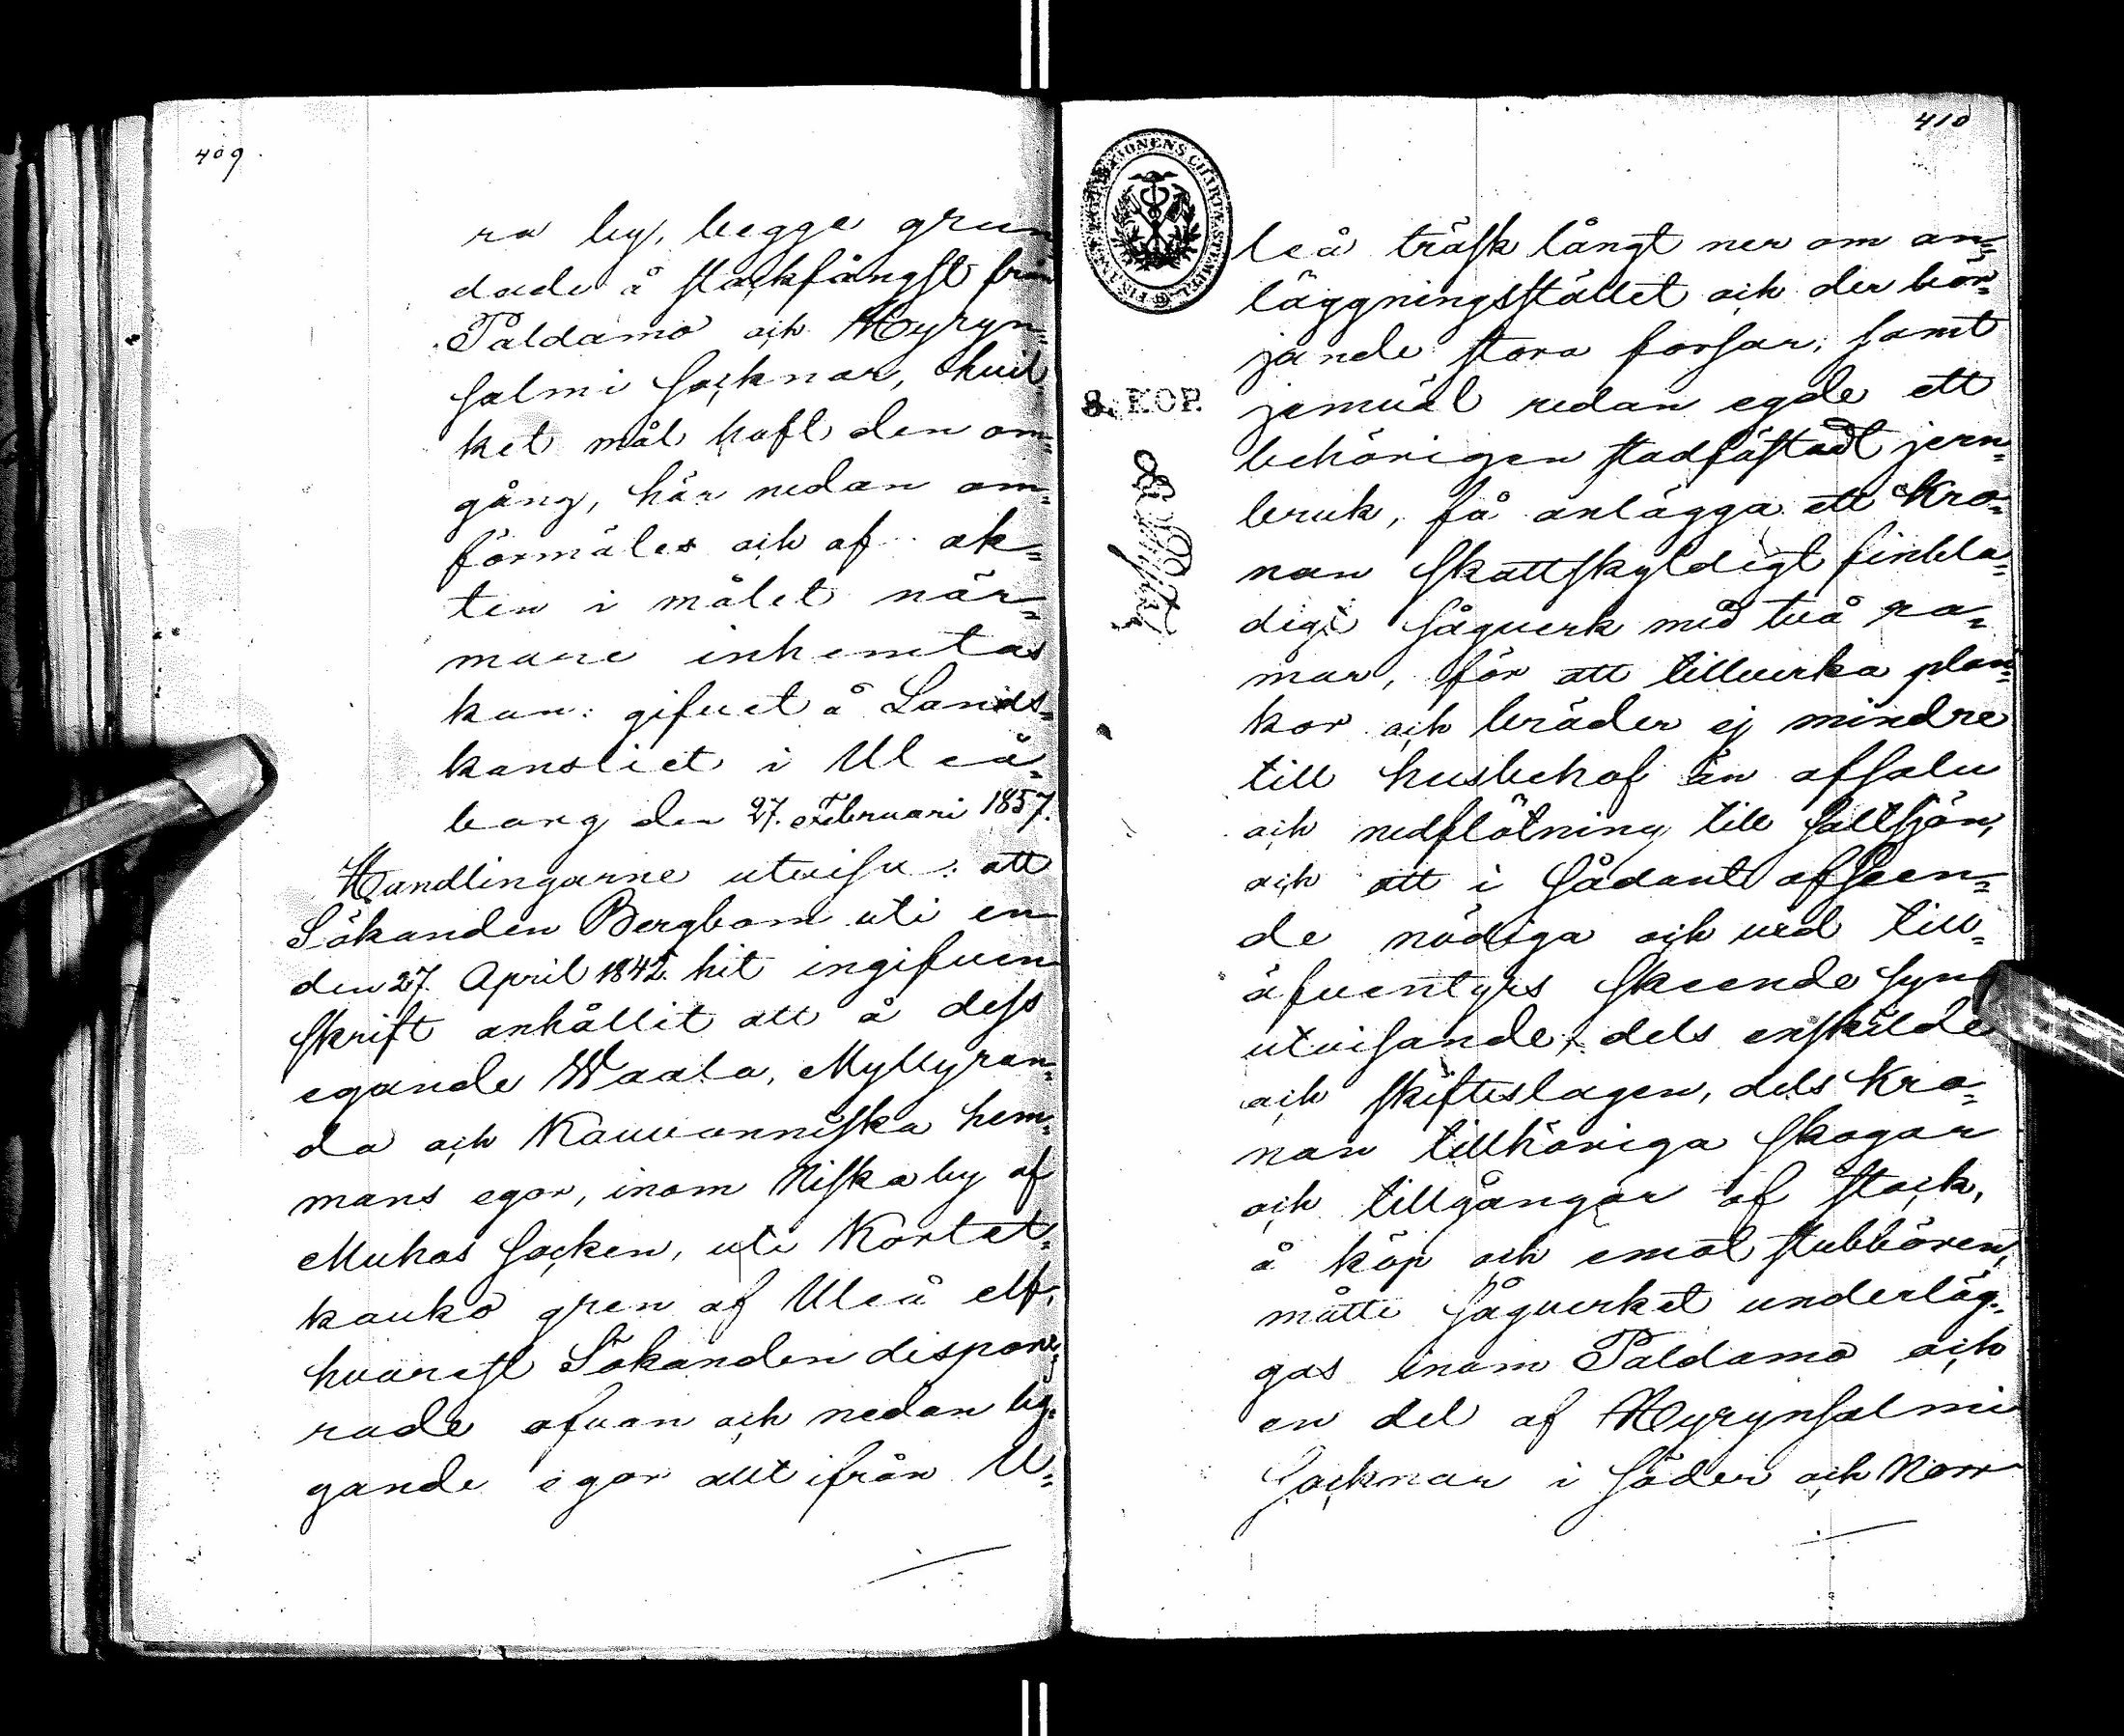 409.
ra by, begge grun-
dade å stockfångst från
Paldamo och Hyryn-
salmi socknar, hvil-
ket mål haft den om-
gång, här nedan om-
förmäles och af ak-
ten i målet när-
mare inhemtas
kan: gifvet å Lands-
kansliet i Uleå-
borg den 27. Februari 1857.
Handlingarne utvisa: att
Sökanden Bergbom uti en
den 27. April 1842 hit ingifven
skrift anhållit att å dess
egande Waala, Myllyran-
da och Kauvonniska hem-
mans egor, inom Niska by af
Muhos Socken, uti Kortet-
kouko gren af Uleå elf,
hvarest Sökanden dispone-
rade ofvan och nedan lig-
gande egor allt ifrån U-
410
FINANS EXPEDITIONENS CHARTÆ STÄMPEL
8. KOP.
leå träsk långt ner om an-
läggningsstället och der bör-
jande stora forsar, samt
jemväl redan egde ett
behörigen stadfästadt jern-
bruk, få anlägga ett Kro-
nan skattskyldigt finbla-
digt sågverk med två ra-
mar, för att tillverka plan-
kor och bräder ej mindre
till husbehof än afsalu
och nedflötning till saltsjön,
och att i sådant afseen-
de nödiga och ved till-
äfventyrs skeende syn
utvisande, dels enskilde
och skifteslagen, dels Kro-
nan tillhöriga skogar
och tillgångar af stock,
å köp och emot stubbören,
måtte sågverket underläg-
gas inom Paldamo och
en del af Hyrynsalmi
Socknar i söder och Norr